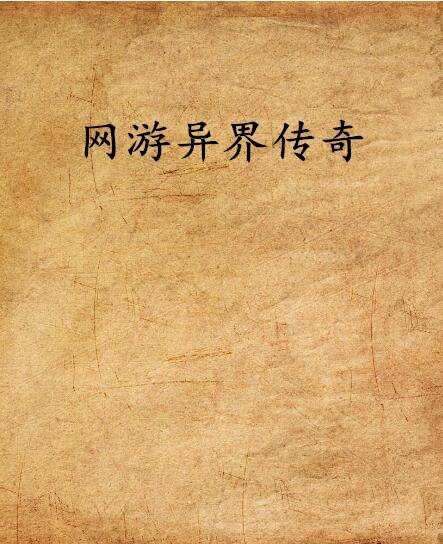 网游异界传奇